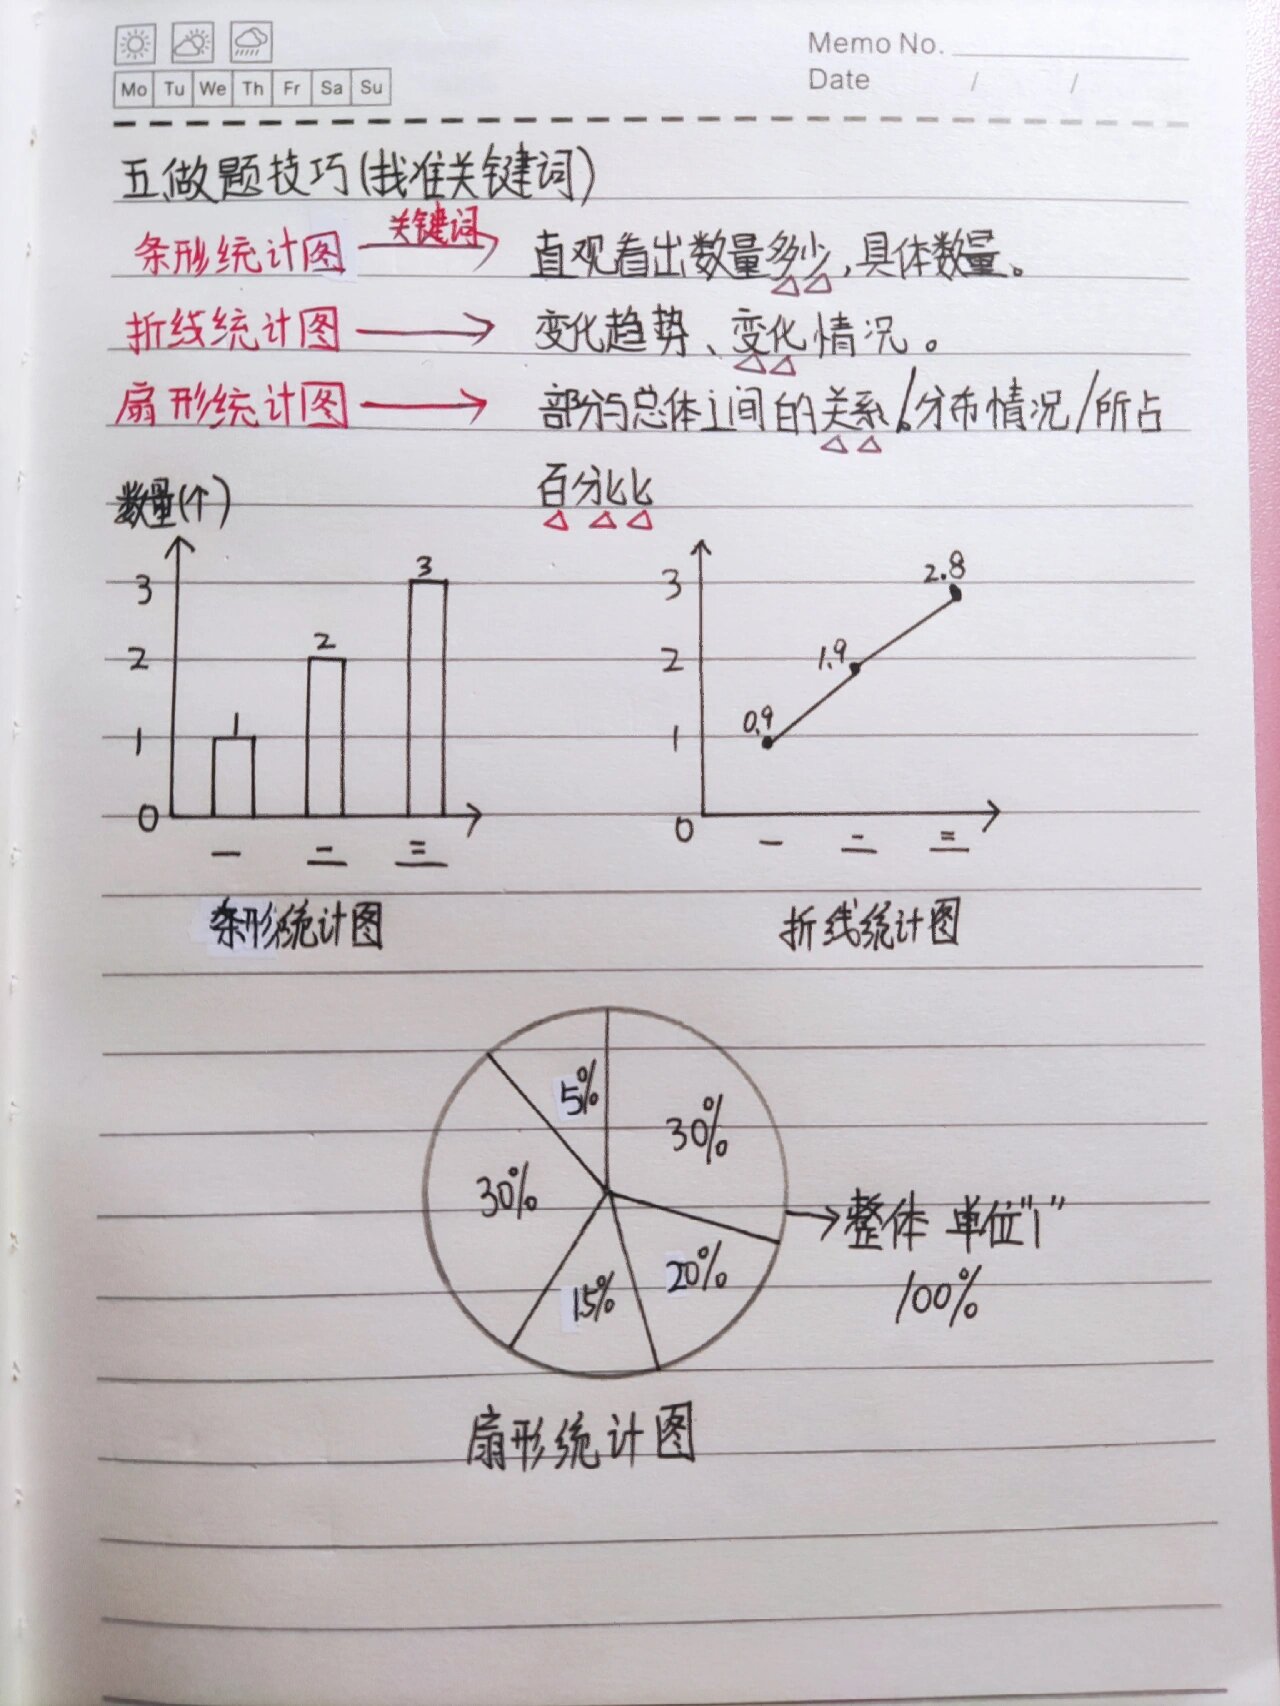 Memo No.
Mo Tu We Th Fr Sa Su
Date / /
五.做题技巧(找准关键词)
条形统计图 关键词 直观看出数量多少,具体数量。
折线统计图 变化趋势、变化情况。
扇形统计图 部分与总体之间的关系/分布情况/所占
百分比
数量(个)
3 2 1 0
1 2 3
一 二 三
条形统计图
3 2 1 0
0.9 1.9 2.8
一 二 三
折线统计图
5% 30%
30%
20%
15%
整体 单位"1"
100%
扇形统计图